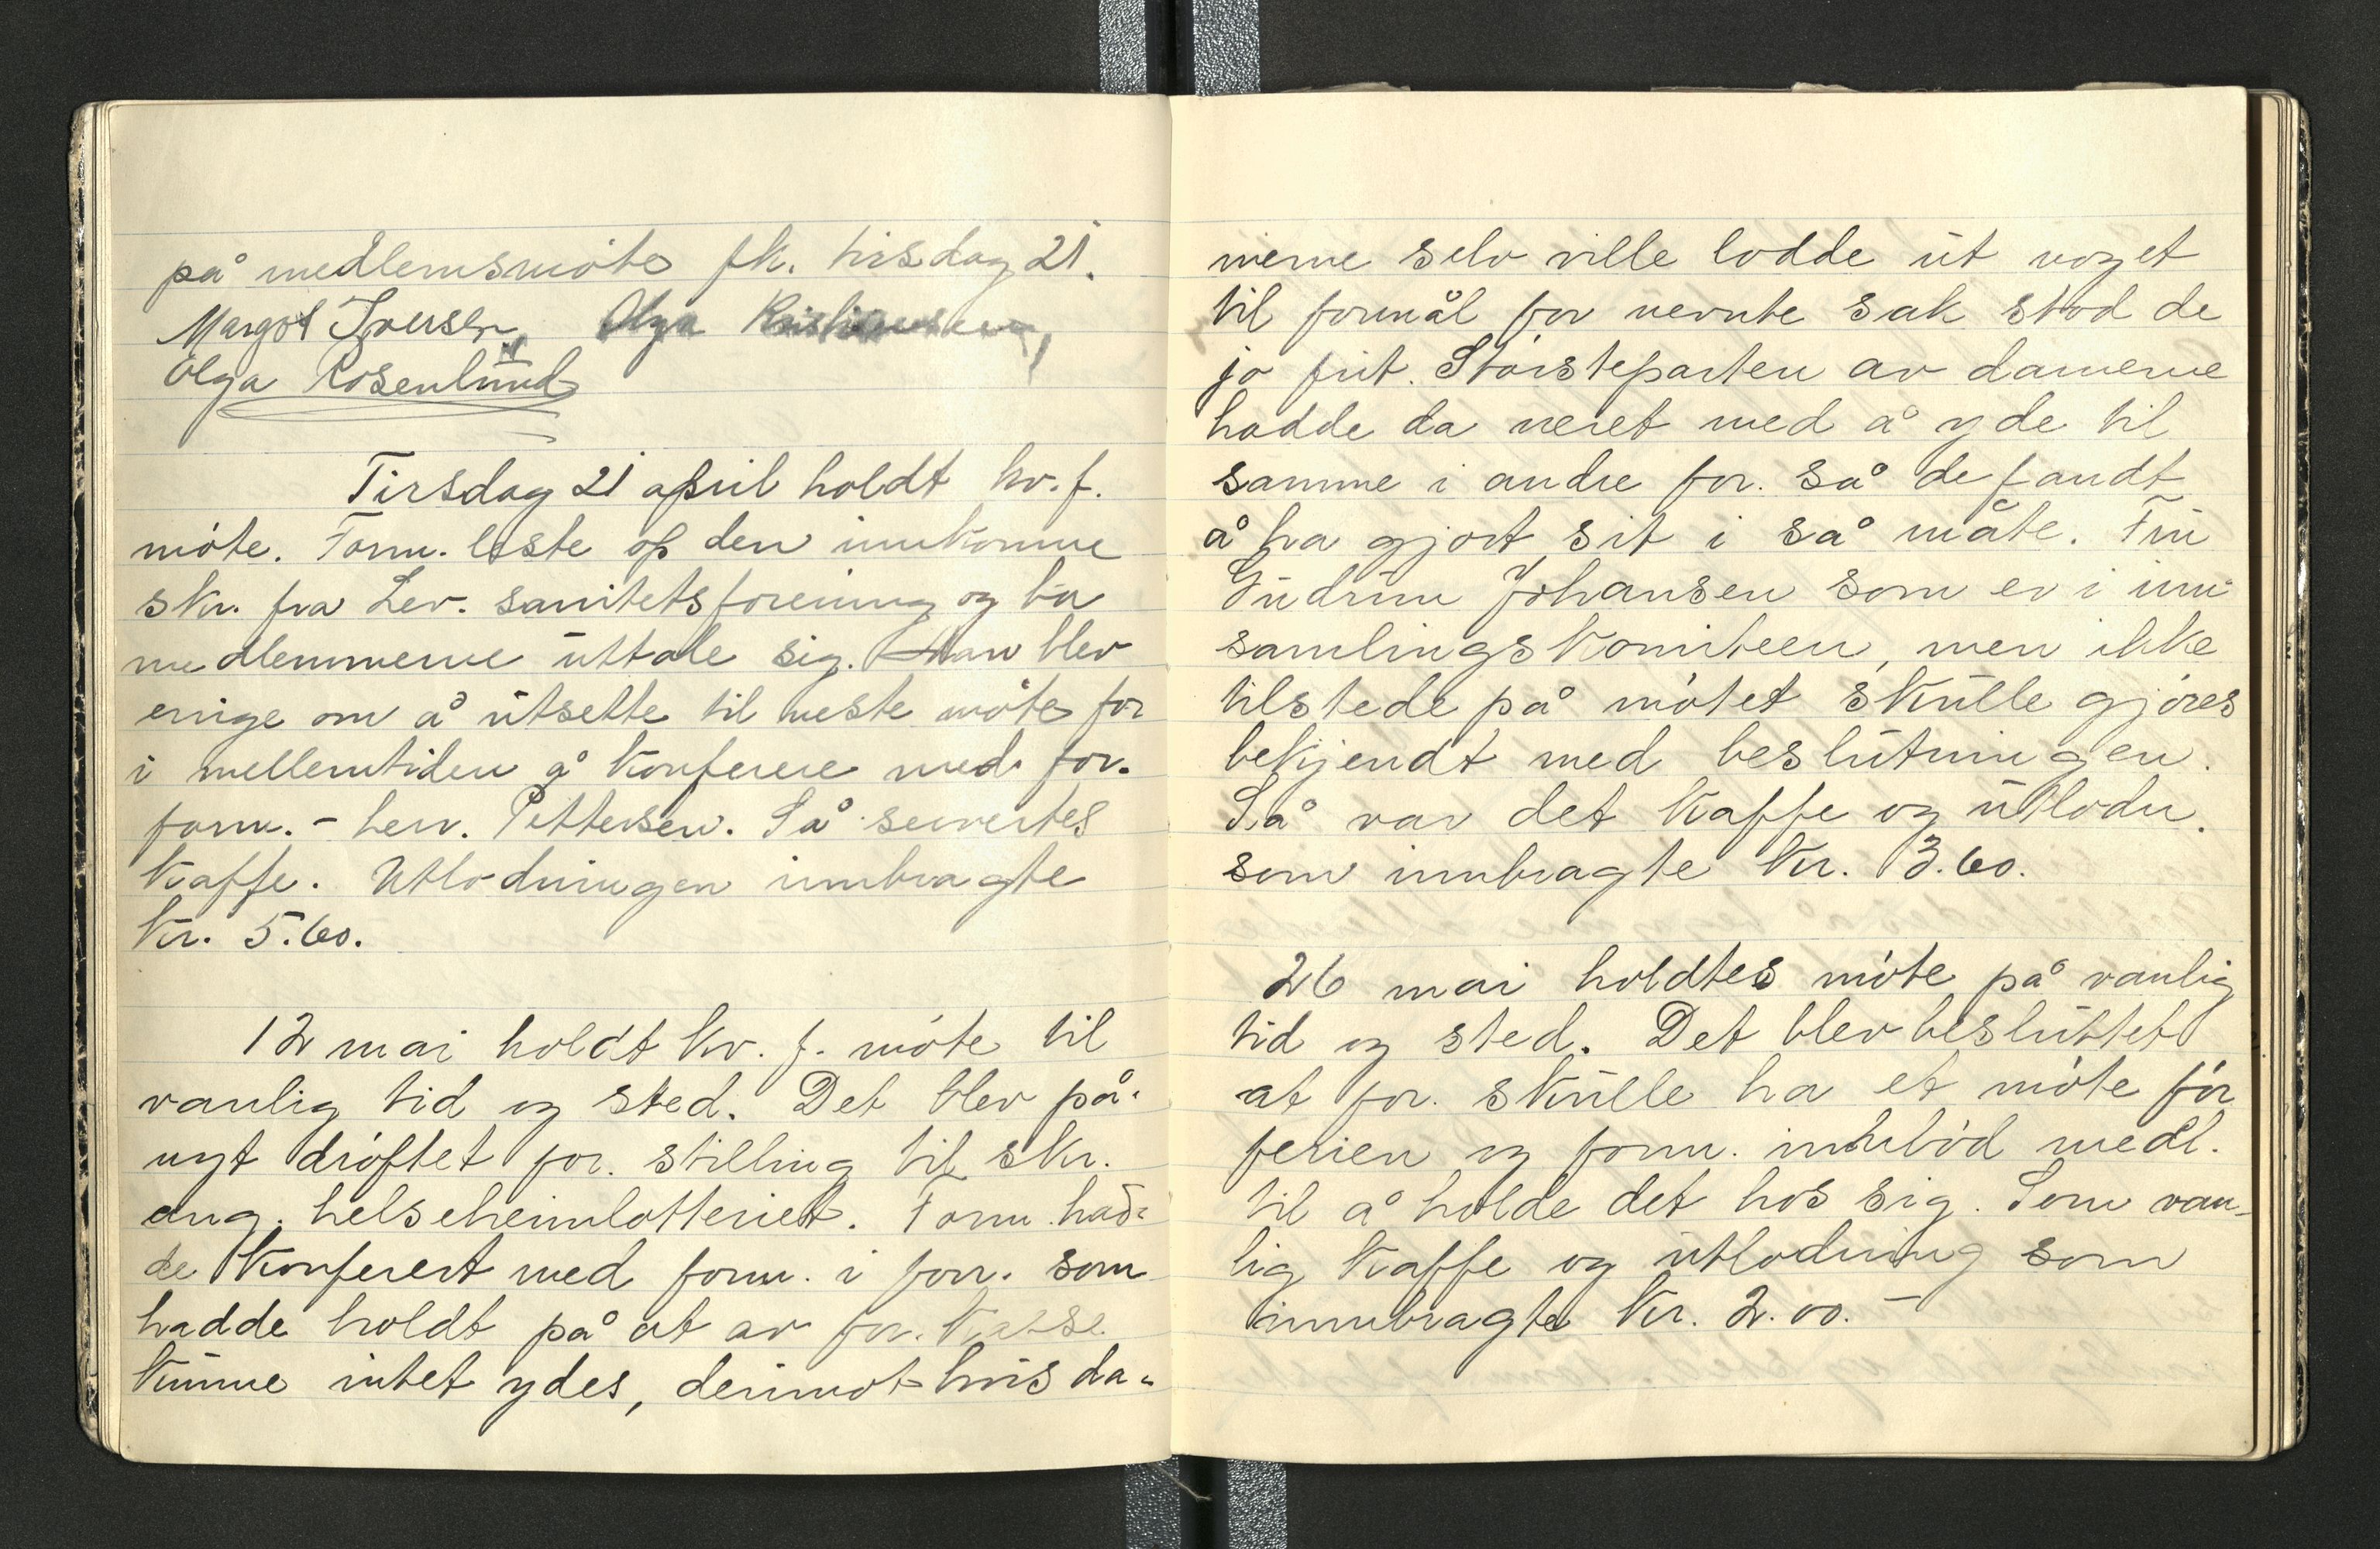 på medlemsmöte fk. tirsdag 21.
Margot Iversen, Olga Kristiansen,
Olga Rosenlund
Tirsdag 21 april holdt kv. f.
möte. Form. leste op den innkomne
skr. fra Lev. sanitetsforening og ba
medlemmerne uttale sig. Man blev
enige om å utsette til neste möte for
i mellemtiden å konferere med for.
form. - herr. Pettersen. Så servertes
kaffe. Utlodningen innbragte
kr. 5.60.
12 mai holdt kv. f. möte til
vanlig tid og sted. Det blev på-
nyt dröftet for. stilling til skr.
ang. helseheimlotteriet. Form. had-
de konferert med form. i forr. som
hadde holdt på at av for. kasse
kunne intet ydes, derimot hvis da-
merne selv ville lodde ut noget
til formål for nevnte sak stod de
jo frit. Störsteparten av damerne
hadde da veret med å yde til
samme i andre for. så de fandt
å ha gjort sit i så måte. Fru
Gudrun Johansen som er i inn-
samlingskomiteen, men ikke
tilstede på mötet skulle gjöres
bekjendt med beslutningen.
Så var det kaffe og utlodn.
som innbragte kr. 3.60.
26 mai holdtes möte på vanlig
tid og sted. Det blev besluttet
at for. skulle ha et möte för
ferien og form. innböd medl.
til å holde det hos sig. Som van-
lig kaffe og utlodning som
innbragte kr. 2.00. -